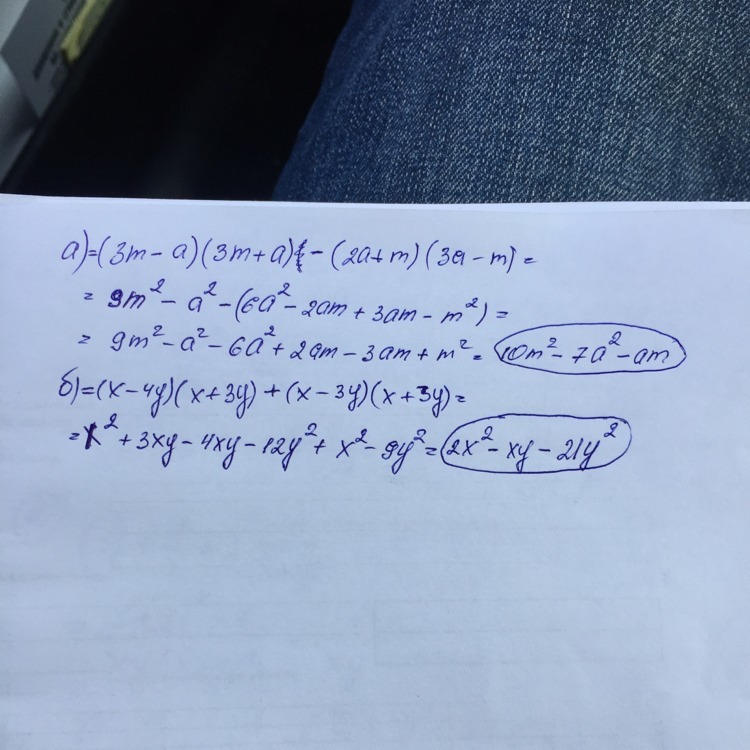 а)=(3m-a)(3m+a)-(2a+m)(3a-m)=
= 9m²-a²-(6a²-2am+3am-m²)=
= 9m²-a²-6a²+2am-3am+m²= 10m²-7a²-am
б)=(x-4y)(x+3y)+(x-3y)(x+3y)=
=x²+3xy-4xy-12y²+x²-9y²= 2x²-xy-21y²